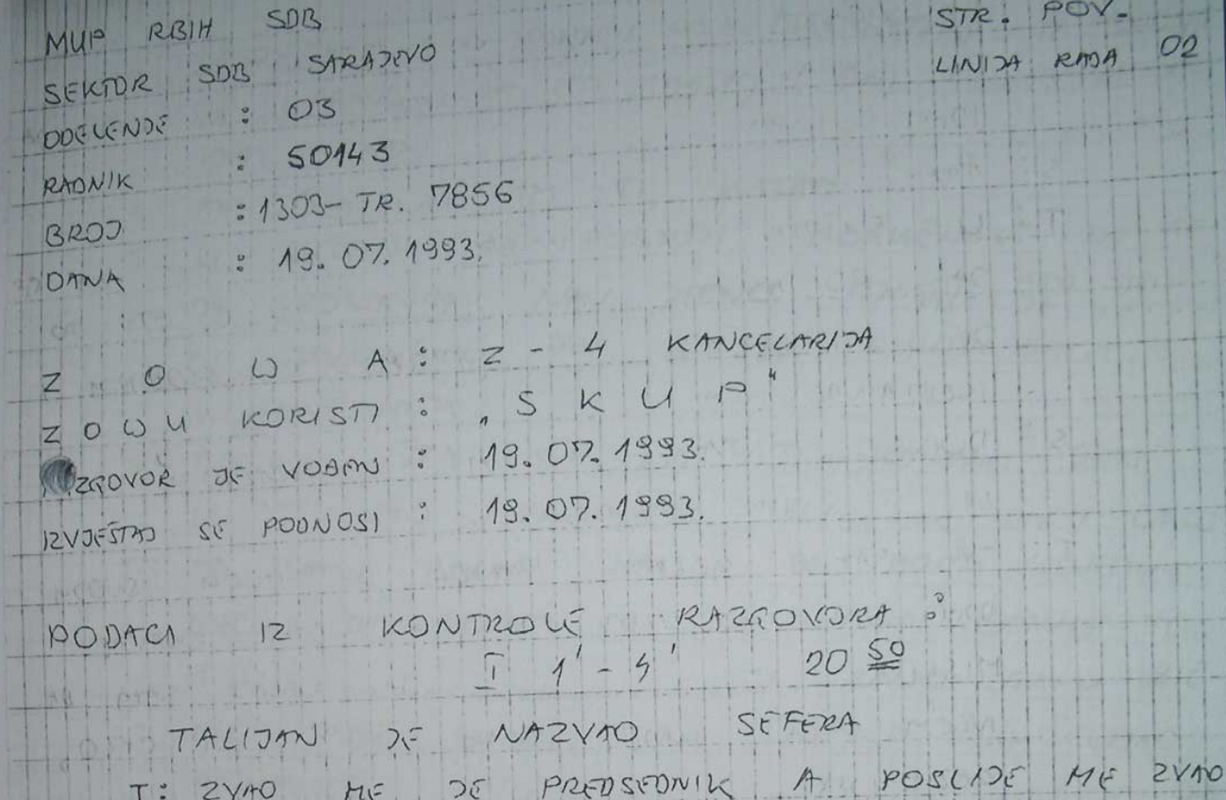 MUP RBIH SDB STR. POV.
SEKTOR SDB SARAJEVO LINIJA RADA 02
ODELENJE : 03
RADNIK : 50143
BROJ : 1303- TR. 7856
DANA : 19. 07. 1993.
Z O W A : Z - 4 KANCELARIJA
ZOWU KORISTI : „S K U P"
RAZGOVOR JE VOĐEN : 19. 07. 1993.
IZVJEŠTAJ SE PODNOSI : 19. 07. 1993.
PODACI IZ KONTROLE RAZGOVORA :
I 1' - 4' 20 50
TALIJAN JE NAZVAO SEFERA
T: ZVAO ME JE PREDSEDNIK A POSLIJE ME ZVAO